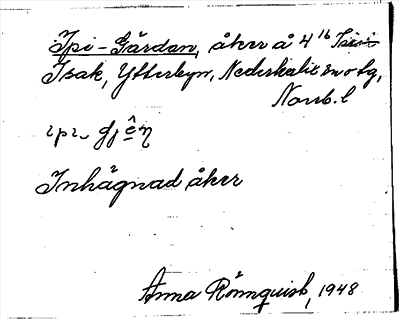 Ipi-Gärdan, åker å 4¹⁶
Isak, Ytterbyn, Nederkalix sn o tg,
Norrb. l
Inhägnad åker
Anna Rönnquist, 1948